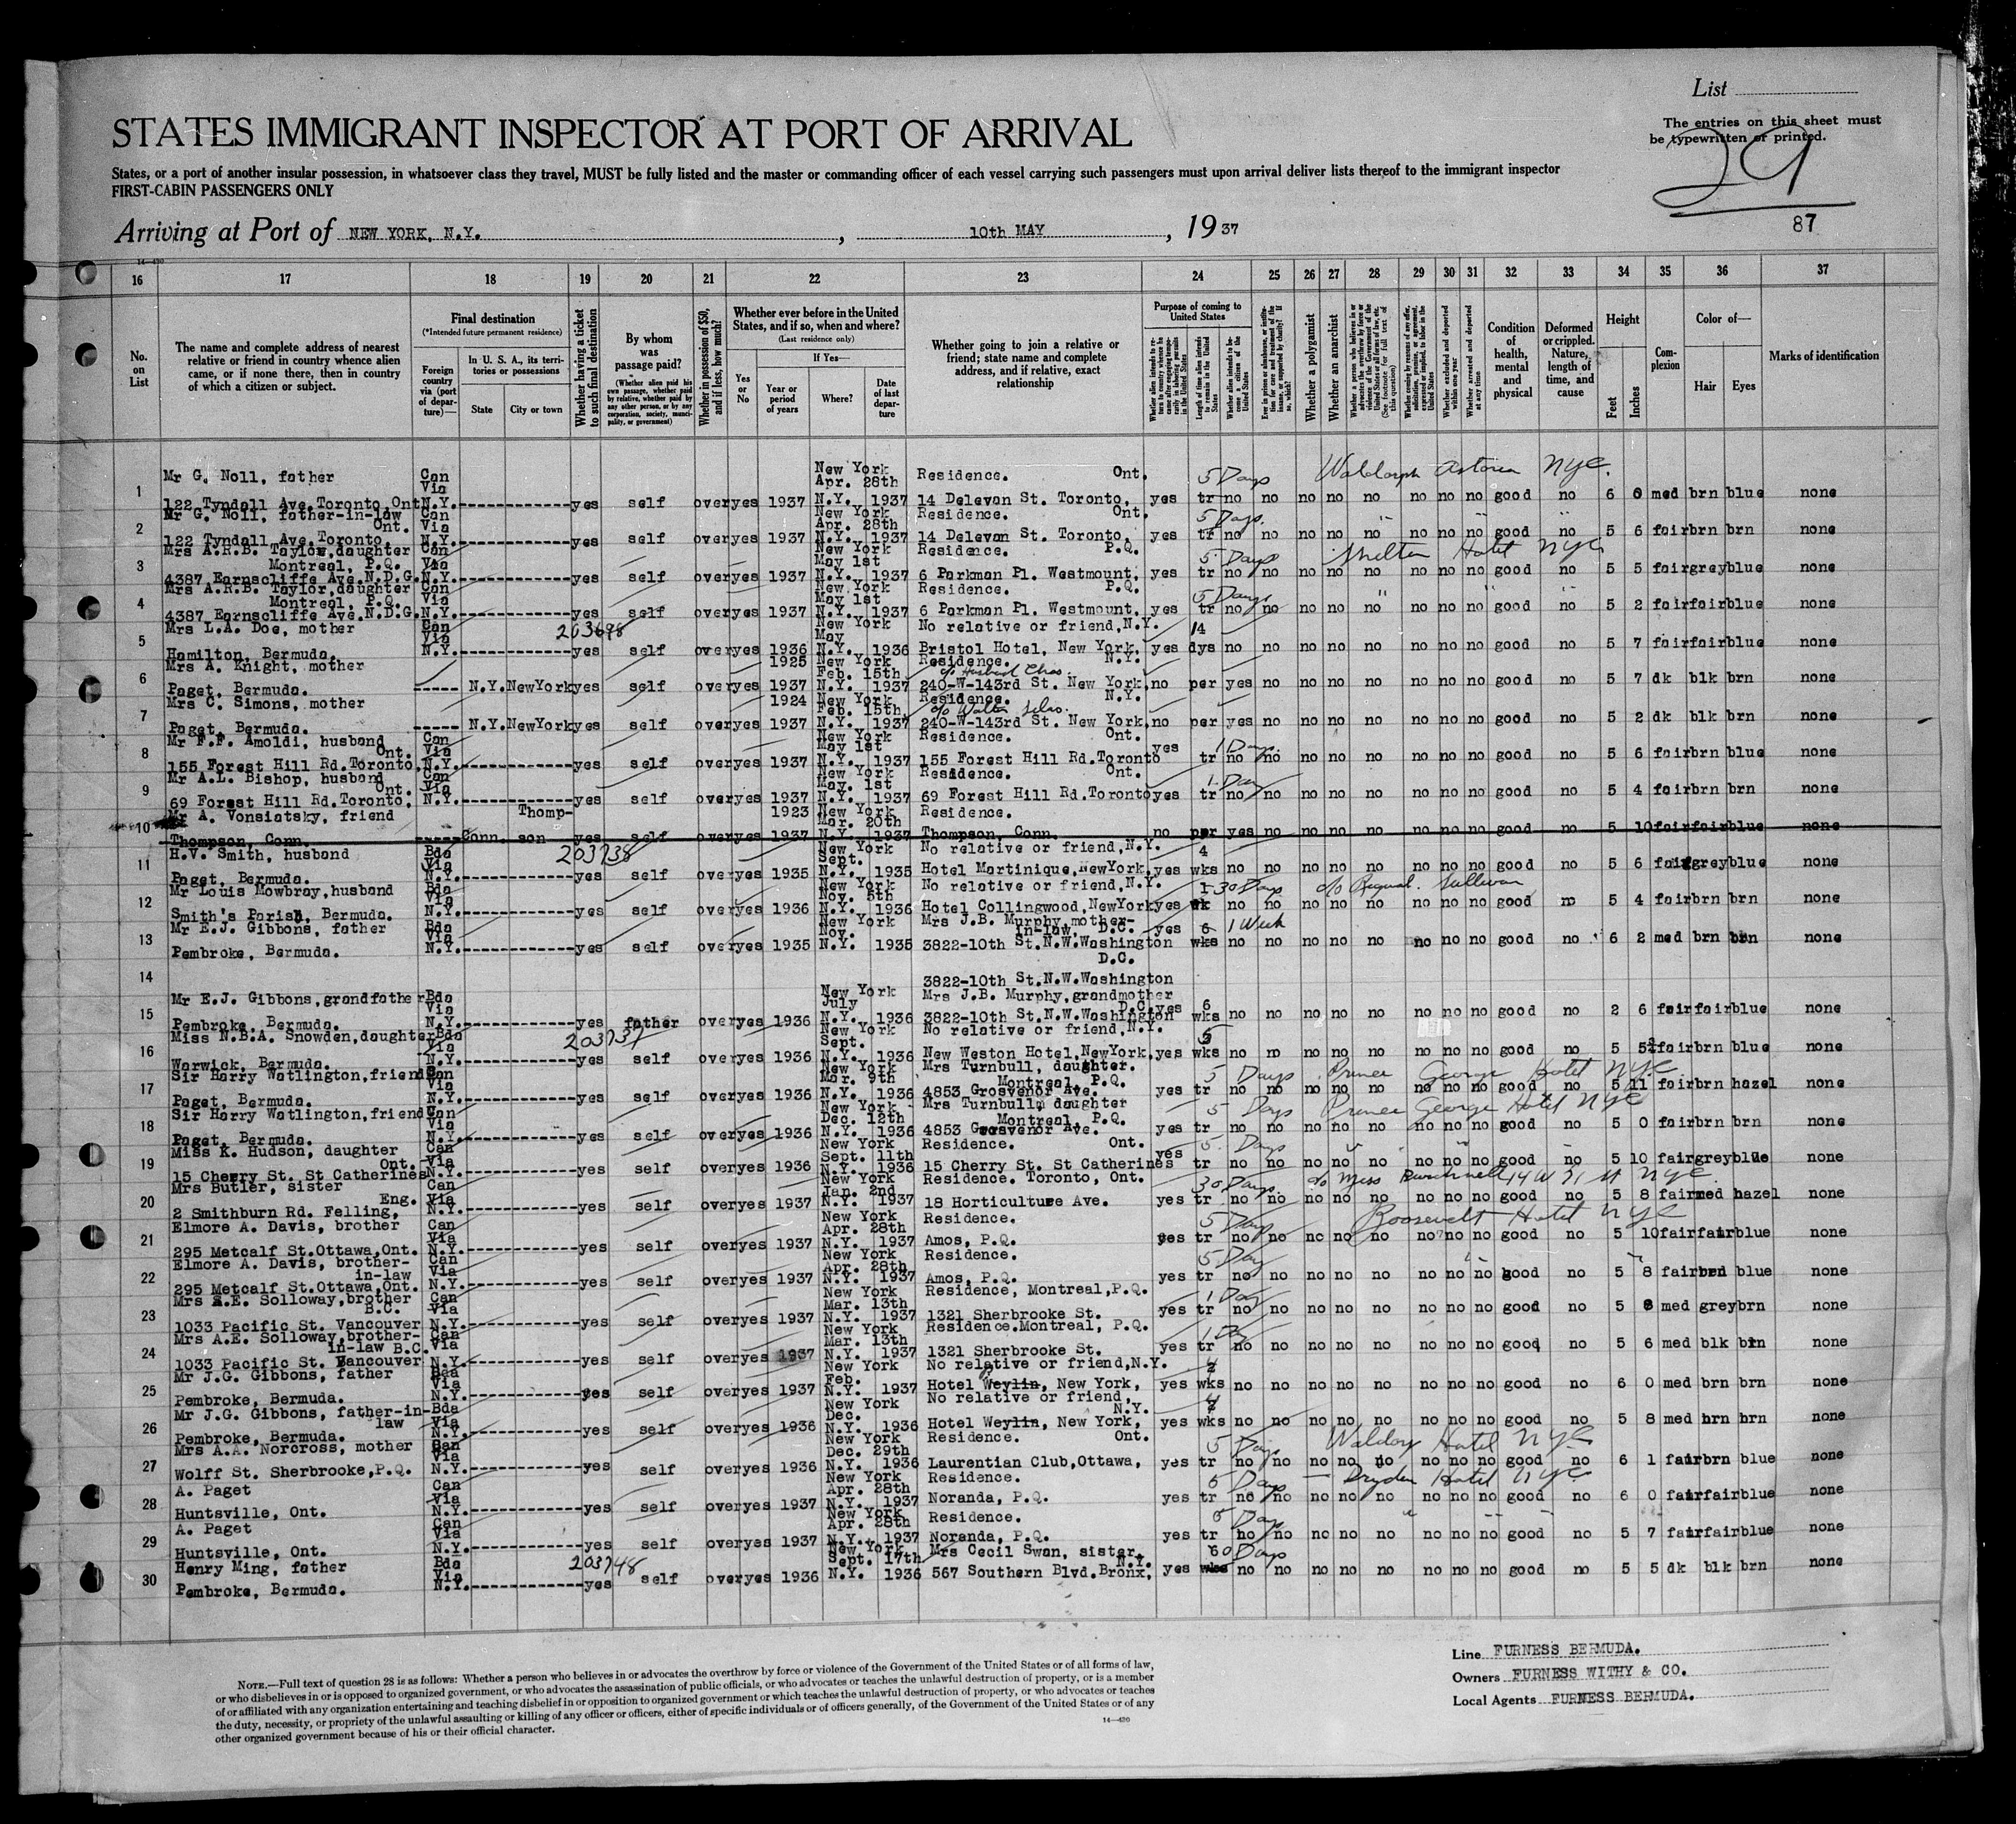 List
The entries on this sheet must
be typewritten or printed.
29
87
STATES IMMIGRANT INSPECTOR AT PORT OF ARRIVAL
States, or a port of another insular possession, in whatsoever class they travel, MUST be fully listed and the master or commanding officer of each vessel carrying such passengers must upon arrival deliver lists thereof to the immigrant inspector
FIRST-CABIN PASSENGERS ONLY
Arriving at Port of NEW YORK, N.Y. , 10th MAY , 1937
14—430
16 17 18 19 20 21 22 23 24 25 26 27 28 29 30 31 32 33 34 35 36 37
No. on List
The name and complete address of nearest relative or friend in country whence alien came, or if none there, then in country of which a citizen or subject.
Final destination
(*Intended future permanent residence)
Foreign country via (port of departure)—
In U. S. A., its territories or possessions
State City or town
Whether having a ticket to such final destination
By whom was passage paid?
(Whether alien paid his own passage, whether paid by relative, whether paid by any other person, or by any corporation, society, municipality, or government)
Whether in possession of $50, and if less, how much?
Whether ever before in the United States, and if so, when and where?
(Last residence only)
Yes or No
If Yes—
Year or period of years Where? Date of last departure
Whether going to join a relative or friend; state name and complete address, and if relative, exact relationship
Purpose of coming to United States
Length of time alien intends to remain in the United States
Whether alien intends to become a citizen of the United States
Whether a polygamist
Whether an anarchist
Condition of health, mental and physical
Deformed or crippled. Nature, length of time, and cause
Height
Feet Inches
Complexion
Color of—
Hair Eyes
Marks of identification
Mr G. Noll, father Can New York Residence. Ont. 5 Days Astoria NYC.
Via Apr. 28th
1 122 Tyndall Ave.Toronto,Ont N.Y. yes self over yes 1937 N.Y. 1937 14 Delevan St. Toronto, yes tr no no no no no no no no good no 6 0 med brn blue none
Mr G. Noll, father-in-law Can New York Residence. Ont. 5 Days.
Ont. Via Apr. 28th
2 122 Tyndall Ave.Toronto, N.Y. yes self over yes 1937 N.Y. 1937 14 Delevan St. Toronto, yes tr no no no no no no no no good no 5 6 fair brn brn none
Mrs A.R.B. Taylor,daughter Can New York Residence. P.Q. 5 Days Shelton Hotel NYC
Montreal, P.Q. Via May 1st
3 4387 Earnscliffe Ave.N.D.G. N.Y. yes self over yes 1937 N.Y. 1937 6 Parkman Pl. Westmount, yes tr no no no no no no no no good no 5 5 fair grey blue none
Mrs A.R.B. Taylor,daughter Can New York Residence. P.Q. 5 Days
Montreal, P.Q. Via May 1st
4 4387 Earnscliffe Ave.N.D.G. N.Y. yes self over yes 1937 N.Y. 1937 6 Parkman Pl. Westmount, yes tr no no no no no no no no good no 5 2 fair fair blue none
Mrs L.A. Doe, mother Can 203698 New York No relative or friend,N.Y. 14
Via May
5 Hamilton, Bermuda. N.Y. yes self over yes 1936 N.Y. 1936 Bristol Hotel, New York, yes dys no no no no no no no no good no 5 7 fair fair blue none
Mrs A. Knight, mother 1925 New York Residence. N.Y.
Feb. 15th c/o Husband Chas.
6 Paget, Bermuda. N.Y. NewYork yes self over yes 1937 N.Y. 1937 240-W-143rd St. New York, no per yes no no no no no no no good no 5 7 dk blk brn none
Mrs C. Simons, mother 1924 New York Residence. N.Y.
Feb. 15th c/o Walter
7 Paget, Bermuda. N.Y. NewYork yes self over yes 1937 N.Y. 1937 240-W-143rd St. New York, no per yes no no no no no no no good no 5 2 dk blk brn none
Mr F.F. Amoldi, husband Can New York Residence. Ont.
Ont. Via May 1st yes 1 Days.
8 155 Forest Hill Rd.Toronto, N.Y. yes self over yes 1937 N.Y. 1937 155 Forest Hill Rd.Toronto tr no no no no no no no no good no 5 6 fair brn blue none
Mr A.L. Bishop, husband Can New York Residence. Ont. 1 Day
Ont. Via May. 1st
9 69 Forest Hill Rd.Toronto, N.Y. yes self over yes 1937 N.Y. 1937 69 Forest Hill Rd.Toronto yes tr no no no no no no no no good no 5 4 fair brn brn none
Mr A. Vonsiatsky, friend Thomp- 1923 New York Residence.
Mar. 20th
10 Thompson, Conn. Conn. son yes self over yes 1937 N.Y. 1937 Thompson, Conn. no per yes no no no no no no no good no 5 10 fair fair blue none
H.V. Smith, husband Bda 203738 New York No relative or friend,N.Y. 4
Via Sept.
11 Paget, Bermuda. N.Y. yes self over yes 1935 N.Y. 1935 Hotel Martinique,NewYork, yes wks no no no no no no no no good no 5 6 fair grey blue none
Mr Louis Mowbray,husband Bda New York No relative or friend,N.Y. 1 30 Days c/o Sullivan
Via Nov. 5th
12 Smith's Parish, Bermuda. N.Y. yes self over yes 1936 N.Y. 1936 Hotel Collingwood,NewYork yes wk no no no no no no no no good no 5 4 fair brn brn none
Mr E.J. Gibbons, father Bda New York Mrs J.B. Murphy,mother-
Via Nov. in-law, D.C. yes 6 1 Week
13 Pembroke, Bermuda. N.Y. yes self over yes 1935 N.Y. 1935 3822-10th St.N.W.Washington wks no no no no no no no no good no 6 2 med brn brn none
D.C.
14 3822-10th St.N.W.Washington
Mr E.J. Gibbons,grandfather Bda New York Mrs J.B. Murphy,grandmother
Via July D.C. yes 6
15 Pembroke, Bermuda. N.Y. yes father over yes 1936 N.Y. 1936 3822-10th St.N.W.Washington wks no no no no no no no no good no 2 6 fair fair blue none
Miss N.B.A. Snowden,daughter Bda 203737 New York No relative or friend,N.Y. 5
Via Sept.
16 Warwick, Bermuda. N.Y. yes self over yes 1936 N.Y. 1936 New Weston Hotel,NewYork, yes wks no no no no no no no no good no 5 5½ fair brn blue none
Sir Harry Watlington,friend Can New York Mrs Turnbull, daughter. 5 Days Prince George Hotel NYC
Via Mar. 9th Montreal, P.Q.
17 Paget, Bermuda. N.Y. yes self over yes 1936 N.Y. 1936 4853 Grosvenor Ave. yes tr no no no no no no no no good no 5 11 fair brn hazel none
Sir Harry Watlington,friend Can New York Mrs Turnbull, daughter 5 Days Prince George Hotel NYC
Via Dec. 12th Montreal, P.Q.
18 Paget, Bermuda. N.Y. yes self over yes 1936 N.Y. 1936 4853 Grosvenor Ave. yes tr no no no no no no no no good no 5 0 fair brn brn none
Miss K. Hudson, daughter Can New York Residence. Ont. 5 Days
Ont. Via Sept. 11th yes
19 15 Cherry St. St Catherines N.Y. yes self over yes 1936 N.Y. 1936 15 Cherry St. St Catherines tr no no no no no no no no good no 5 10 fair grey blue none
Mrs Butler, sister Can New York Residence. Toronto, Ont. 30 Days c/o Miss 14 W 31 St NYC.
Eng. Via Jan. 2nd
20 2 Smithburn Rd. Felling, N.Y. yes self over yes 1937 N.Y. 1937 18 Horticulture Ave. yes tr no no no no no no no no good no 5 8 fair med hazel none
Elmore A. Davis, brother Can New York Residence. 5 Days Roosevelt Hotel NYC
Via Apr. 28th
21 295 Metcalf St.Ottawa,Ont. N.Y. yes self over yes 1937 N.Y. 1937 Amos, P.Q. yes tr no no no no no no no no good no 5 10 fair fair blue none
Elmore A. Davis, brother- Can New York Residence. 5 Day
in-law Via Apr. 28th
22 295 Metcalf St.Ottawa,Ont. N.Y. yes self over yes 1937 N.Y. 1937 Amos, P.Q. yes tr no no no no no no no no good no 5 8 fair brn blue none
Mrs A.E. Solloway,brother Can New York Residence, Montreal,P.Q. 1 Day
B.C. Via Mar. 13th
23 1033 Pacific St. Vancouver N.Y. yes self over yes 1937 N.Y. 1937 1321 Sherbrooke St. yes tr no no no no no no no no good no 5 8 med grey brn none
Mrs A.E. Solloway,brother- Can New York Residence.Montreal, P.Q. 1 Day
in-law B.C. Via Mar. 13th
24 1033 Pacific St. Vancouver N.Y. yes self over yes 1937 N.Y. 1937 1321 Sherbrooke St. yes tr no no no no no no no no good no 5 6 med blk brn none
Mr J.G. Gibbons, father Bda New York No relative or friend,N.Y.
Via Feb.
25 Pembroke, Bermuda. N.Y. yes self over yes 1937 N.Y. 1937 Hotel Weylin, New York, yes wks no no no no no no no no good no 6 0 med brn brn none
Mr J.G. Gibbons, father-in- Bda New York No relative or friend,
law Via Dec. N.Y.
26 Pembroke, Bermuda. N.Y. yes self over yes 1936 N.Y. 1936 Hotel Weylin, New York, yes wks no no no no no no no no good no 5 8 med brn brn none
Mrs A.A. Norcross, mother Can New York Residence. Ont. 5 Days Waldorf Hotel NYC
Via Dec. 29th
27 Wolff St. Sherbrooke,P.Q. N.Y. yes self over yes 1936 N.Y. 1936 Laurentian Club,Ottawa, yes tr no no no no no no no no good no 6 1 fair brn blue none
A. Paget Can New York Residence. 5 Days Dryden Hotel NYC
Via Apr. 28th
28 Huntsville, Ont. N.Y. yes self over yes 1937 N.Y. 1937 Noranda, P.Q. yes tr no no no no no no no no good no 6 0 fair fair blue none
A. Paget Can New York Residence. 5 Days
Via Apr. 28th
29 Huntsville, Ont. N.Y. yes self over yes 1937 N.Y. 1937 Noranda, P.Q. yes tr no no no no no no no no good no 5 7 fair fair blue none
Henry Ming, father Bda 203748 New York Mrs Cecil Swan, sister. 60 Days
Via Sept. 17th N.Y.
30 Pembroke, Bermuda. N.Y. yes self over yes 1936 N.Y. 1936 567 Southern Blvd.Bronx, yes wks no no no no no no no no good no 5 5 dk blk brn none
NOTE.—Full text of question 28 is as follows: Whether a person who believes in or advocates the overthrow by force or violence of the Government of the United States or of all forms of law,
or who disbelieves in or is opposed to organized government, or who advocates the assassination of public officials, or who advocates or teaches the unlawful destruction of property, or is a member
of or affiliated with any organization entertaining and teaching disbelief in or opposition to organized government or which teaches the unlawful destruction of property, or who advocates or teaches
the duty, necessity, or propriety of the unlawful assaulting or killing of any officer or officers, either of specific individuals or of officers generally, of the Government of the United States or of any
other organized government because of his or their official character.
14—430
Line FURNESS BERMUDA.
Owners FURNESS WITHY & CO.
Local Agents FURNESS BERMUDA.